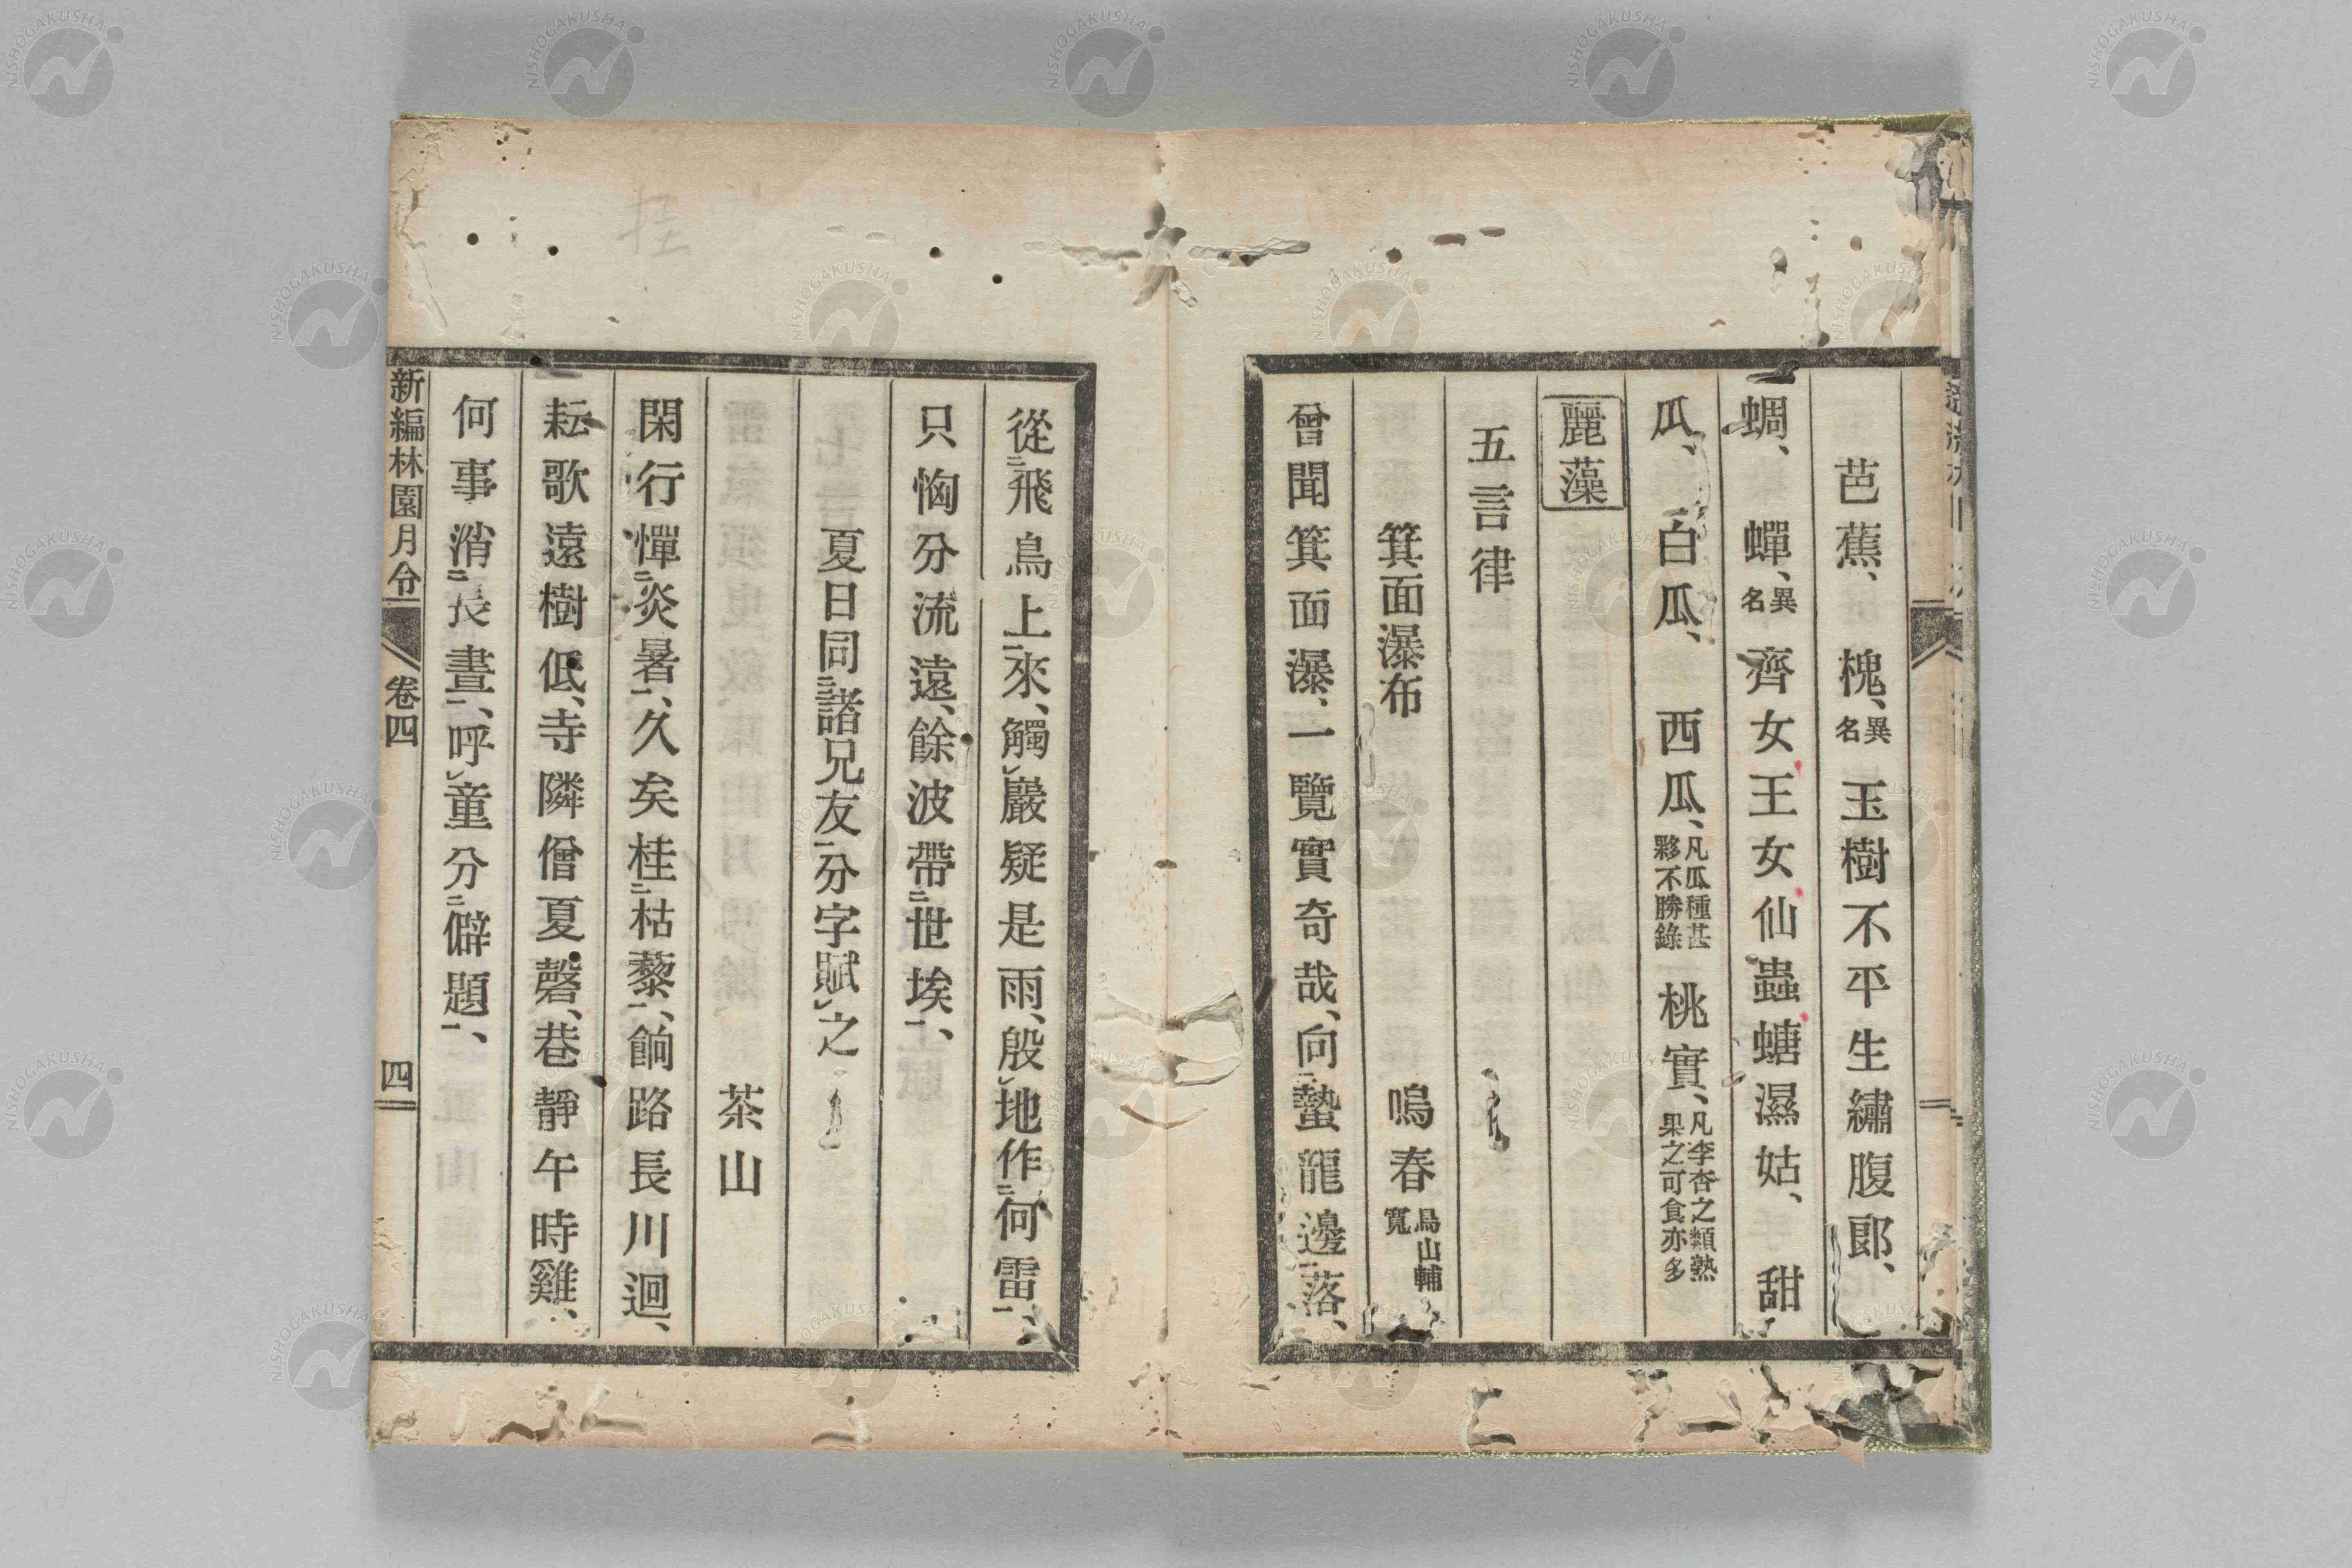 芭蕉、槐、異名玉樹不平生繡腹郎、
蜩、蟬、異名齊女王女仙蟲螗濕姑、甜
瓜、白瓜、西瓜、凡瓜種甚夥不勝錄桃實、凡李杏之類熟果之可食亦多
麗藻
五言律
箕面瀑布　鳴春 鳥山輔寬
曾聞箕面瀑、一覽實奇哉、向二蟄龍邊一落、
從二飛鳥上一來、觸レ巖疑是雨、殷レ地作二何雷一、
只恟分流遠、餘波帶二世埃一、
夏日同二諸兄友一分字賦レ之
茶山
閑行憚二炎暑一、久矣桂二枯藜一、餉路長川迴、
耘歌遠樹低、寺隣僧夏磬、巷靜午時雞、
何事消二長晝一、呼レ童分二僻題一、
新編林園月令
卷四
四
NISHOGAKUSHA